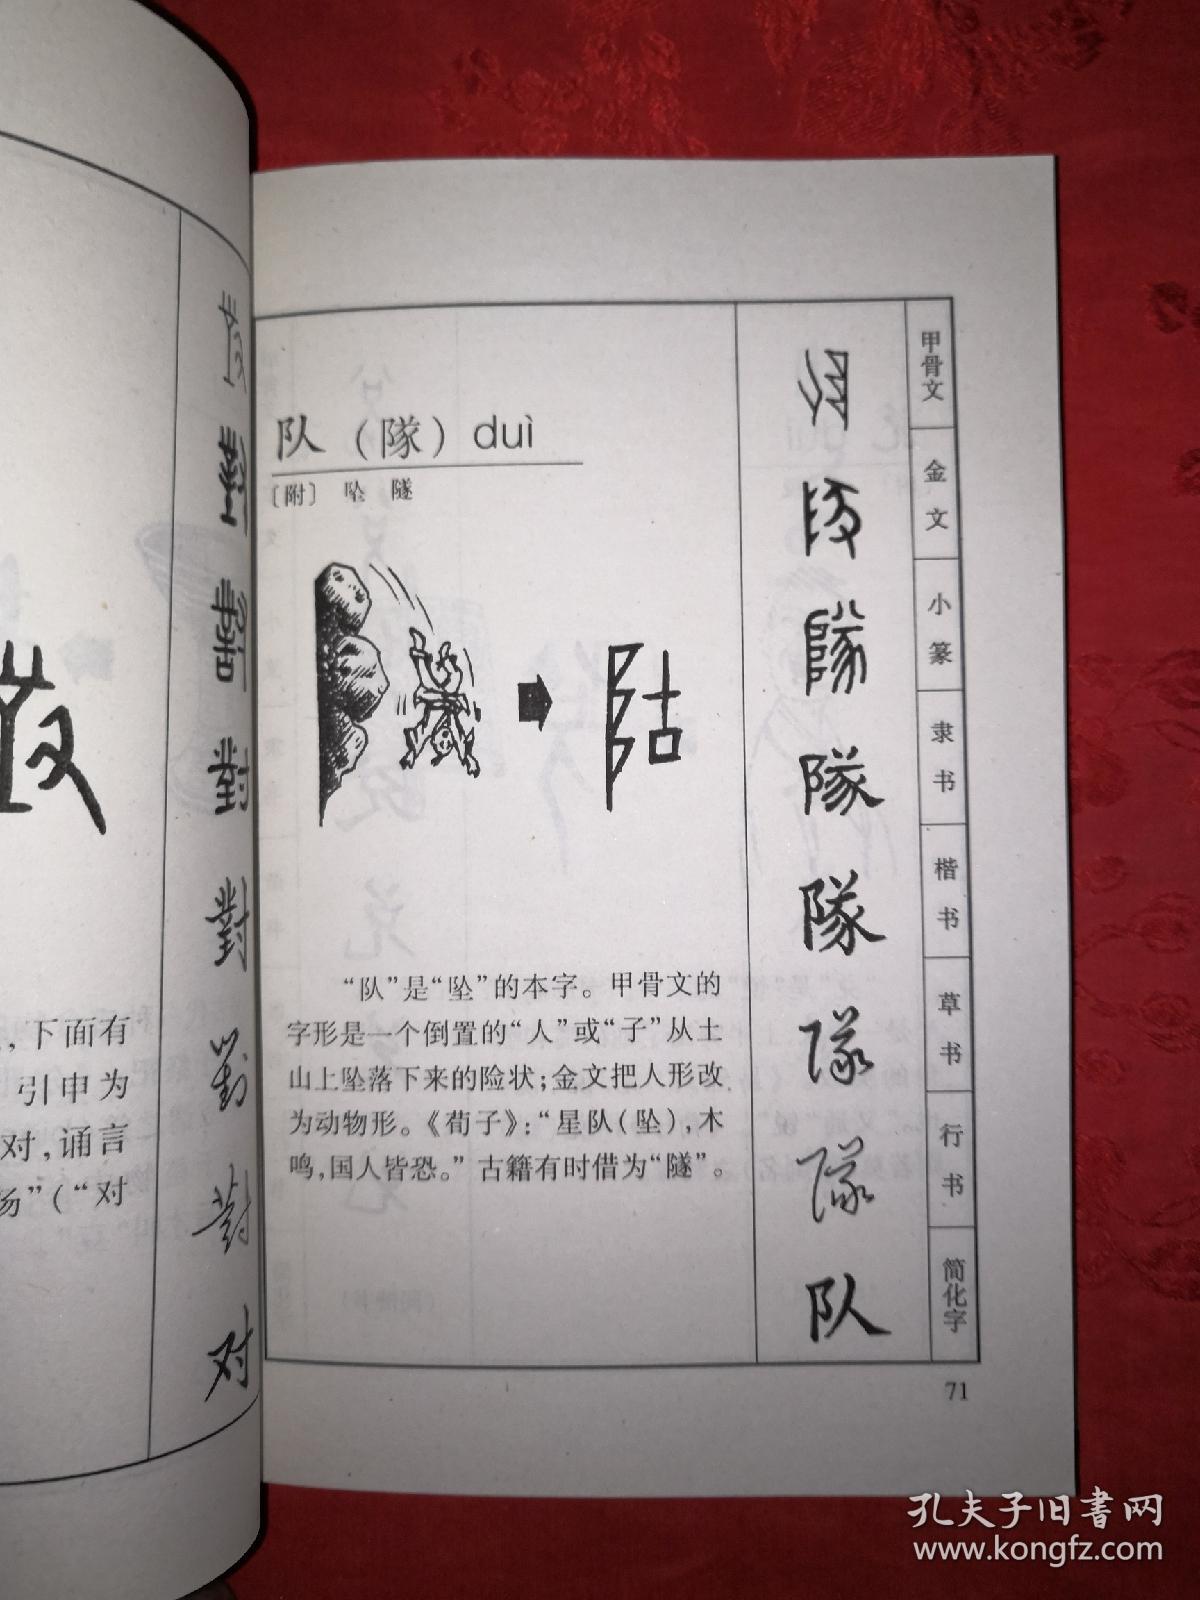 ，下面有
引申为
对，诵言
扬”（“对
對
對
對
對
对
队（隊）duì
〔附〕 坠 隧
“队”是“坠”的本字。甲骨文的
字形是一个倒置的“人”或“子”从土
山上坠落下来的险状；金文把人形改
为动物形。《荀子》：“星队（坠），木
鸣，国人皆恐。”古籍有时借为“隧”。
隊
隊
隊
隊
隊
队
甲骨文
金文
小篆
隶书
楷书
草书
行书
简化字
71
孔夫子旧书网
www.kongfz.com